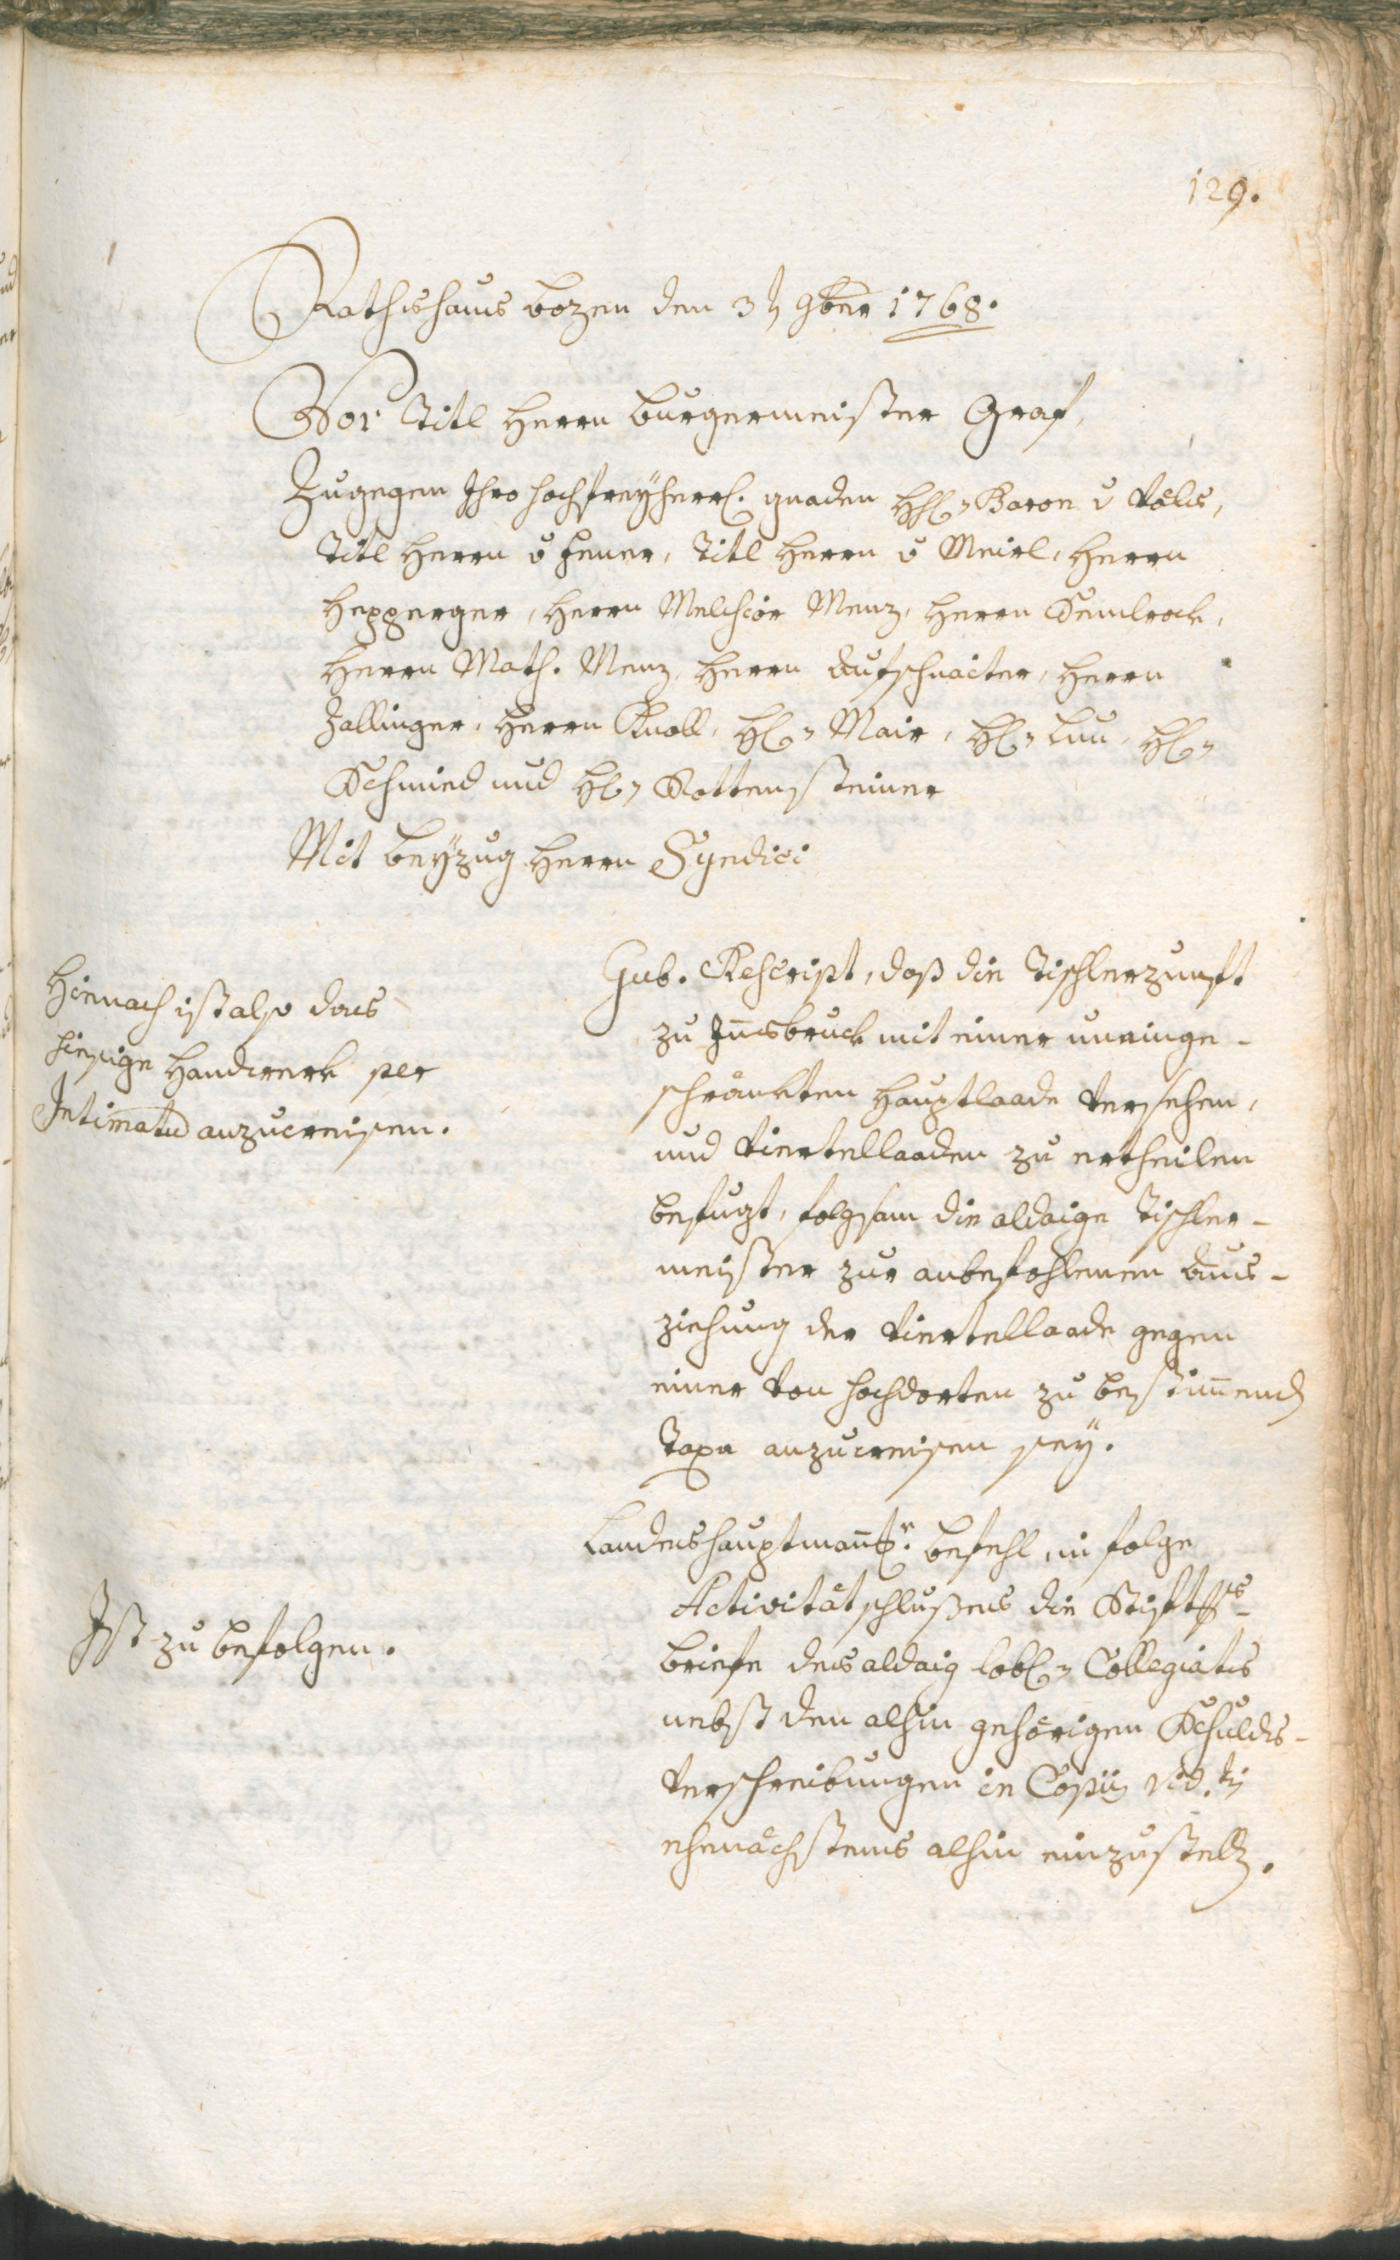 129.
Rathshaus bozen den 3ten 9ber 1768.
Vor Titl Herrn burgermeister Graf,
Zugegen Ihro hochfreyherrl. gnaden Hl. Baron v Völs,
Titl Herrn v Feuer, Titl Herrn v Meirl, Herrn
Hepperger, Herrn Melchior Menz, Herrn Semlrock,
Herrn Math. Menz, Herrn aufschnaiter, Herrn
Zallinger, Herrn Knoll, Hl. Mair, Hl. Lun, Hl.
Schmied und Hl. Rottensteiner
Mit beyzug Herrn Syndici
Hienach ist also das
hiesige Handwerk per
Intimatum anzuweisen.
Gub. Rescript, daß die Tischlerzunft
zu Innsbruck mit einer uneinge-
schränkten Hauptlaade versehen,
und Viertellaaden zu ertheilen
befugt, folgsam die aldaige Tischler-
meister zur anbefohlenen Aus-
ziehung der Viertellaade gegen
einer von hochdorten zu bestimmenden
Taxa anzuweisen sey.
Ist zu befolgen.
Landeshauptmannsr. befehl, in folge
Activitätschlußes die Stifts-
briefe des aldaig löbl. Collegiats
nebst den alhin gehörigen Schulds-
verschreibungen in Copiis vid.tis
ehenächstens alhin einzustellen.